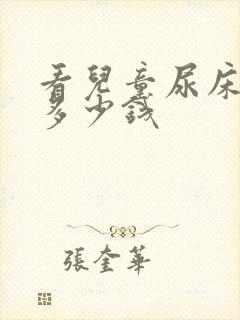 看兒童尿床
多少錢
張奎華